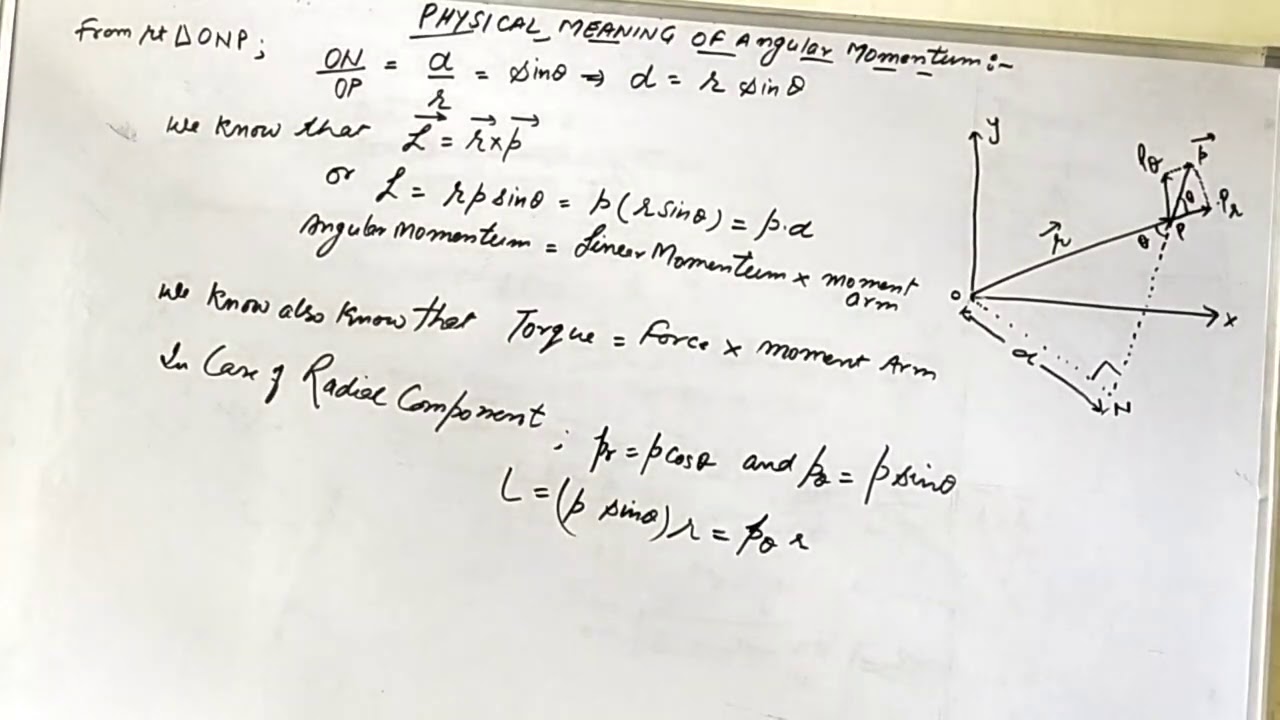 PHYSICAL MEANING OF Angular Momentum :-
From rt ΔONP ;
ON/OP = d/r = sinθ ⇒ d = r sinθ
We know that L⃗ = r⃗ × p⃗
or L = rp sinθ = p(r sinθ) = p.d
Angular Momentum = Linear Momentum × moment
arm
We know also know that Torque = Force × moment Arm
In Case of Radial Component ; pr = p cosθ and pθ = p sinθ
L = (p sinθ) r = pθ r
y
Pθ
p⃗
θ
Pr
r⃗
θ
P
O
x
d
N